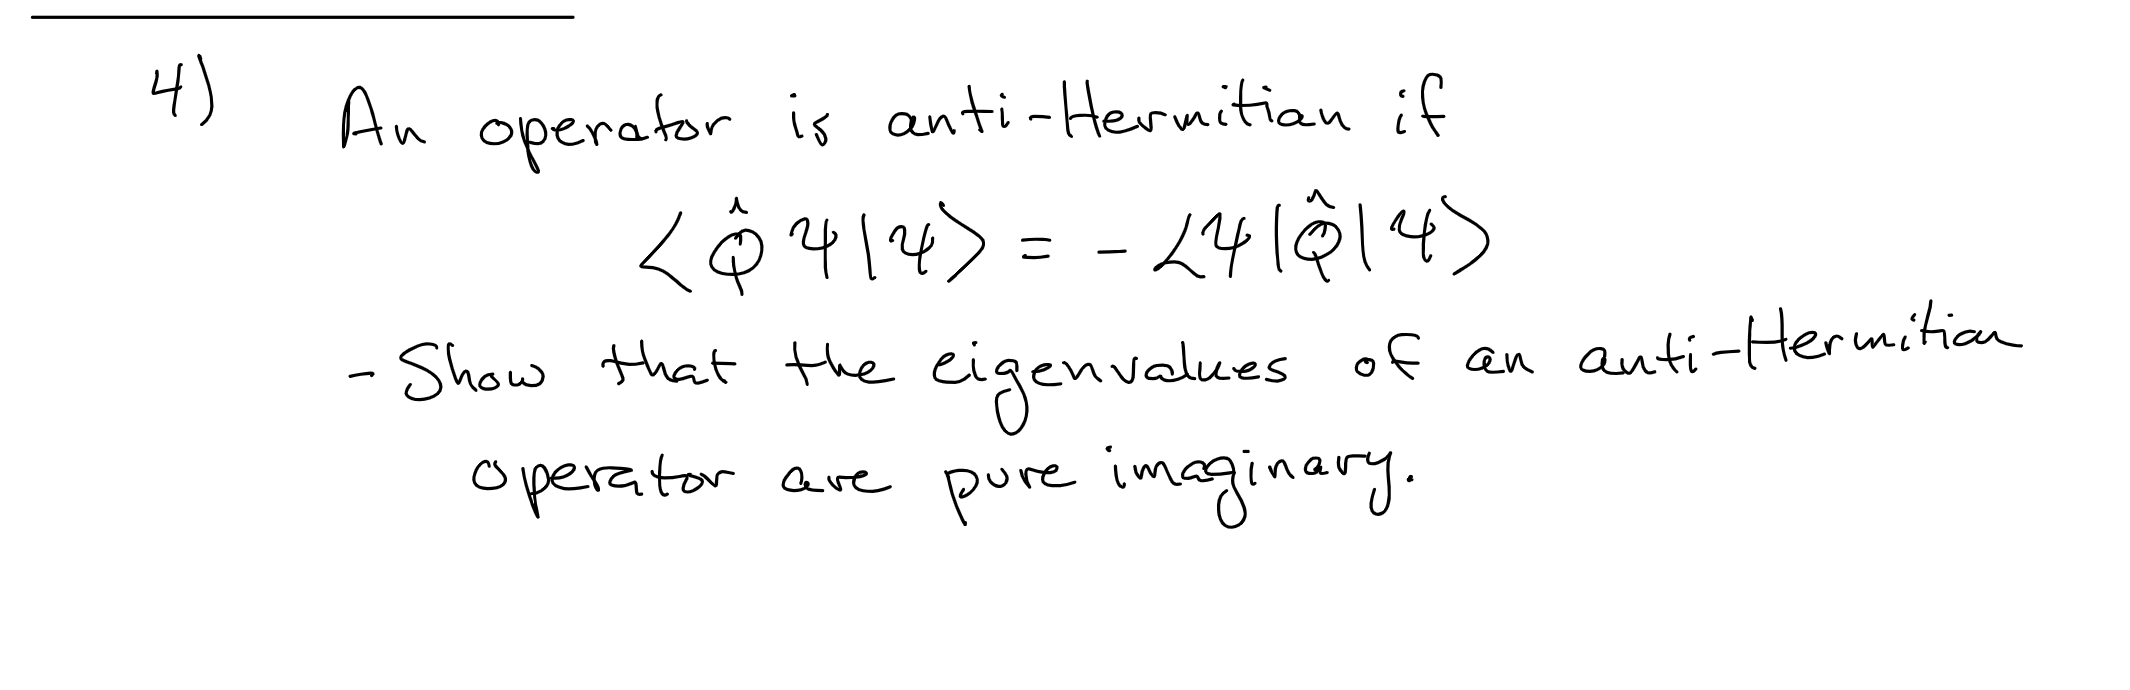 4) An operator is anti-Hermitian if
⟨Q̂ Ψ|Ψ⟩ = - ⟨Ψ|Q̂|Ψ⟩
- Show that the eigenvalues of an anti-Hermitian
operator are pure imaginary.